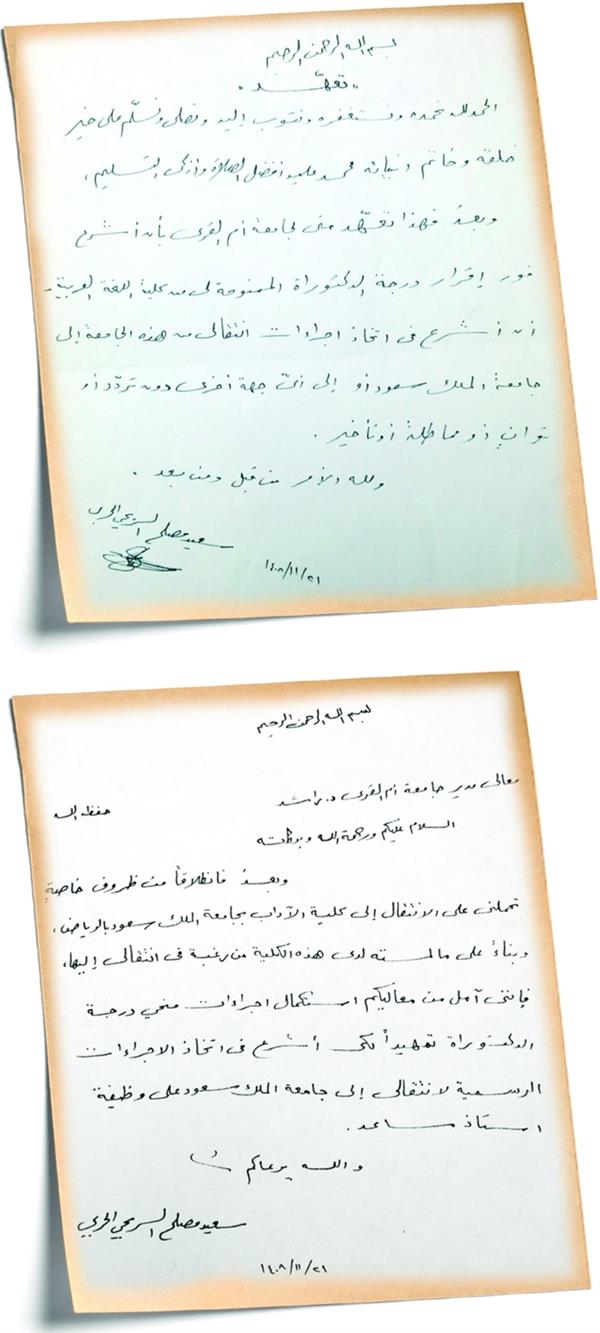 بسم الله الرحمن الرحيم
"تعهّد"
الحمد لله نحمده ونستغفره ونتوب إليه ونصلي ونسلّم على خير
خلقه وخاتم انبيائه محمد عليه افضل الصلاة وازكى التسليم ،
وبعدُ فهذا تعهّد مني لجامعة أم القرى بأن أشرع
فور إقرار درجة الدكتوراة الممنوحة لي من كلية اللغة العربية -
أن أشرع في اتخاذ اجراءات انتقالي من هذه الجامعة إلى
جامعة الملك سعود أو إلى أيّ جهة أخرى دون تردّد أو
توانٍ أو مماطلة أو تأخير .
ولله الأمر من قبل ومن بعد .
سعيد مصلح السريحي الحربي
١٤٠٨/١١/٢١
بسم الله الرحمن الرحيم
معالي مدير جامعة أم القرى د. راشد حفظه الله
السلام عليكم ورحمة الله وبركاته
وبعدُ فانطلاقاً من ظروف خاصةٍ
تحملني على الانتقال إلى كلية الآداب بجامعة الملك سعود بالرياض ،
وبناءً على ما لمسته لدى هذه الكلية من رغبة في انتقالي إليها،
فإنني آمل من معاليكم استكمال اجراءات منحي درجة
الدكتوراة تمهيداً لكي أشرع في اتخاذ الاجراءات
الرسمية لانتقالي إلى جامعة الملك سعود على وظيفة
استاذ مساعد .
والله يرعاكم
سعيد مصلح السريحي الحربي
١٤٠٨/١١/٢١